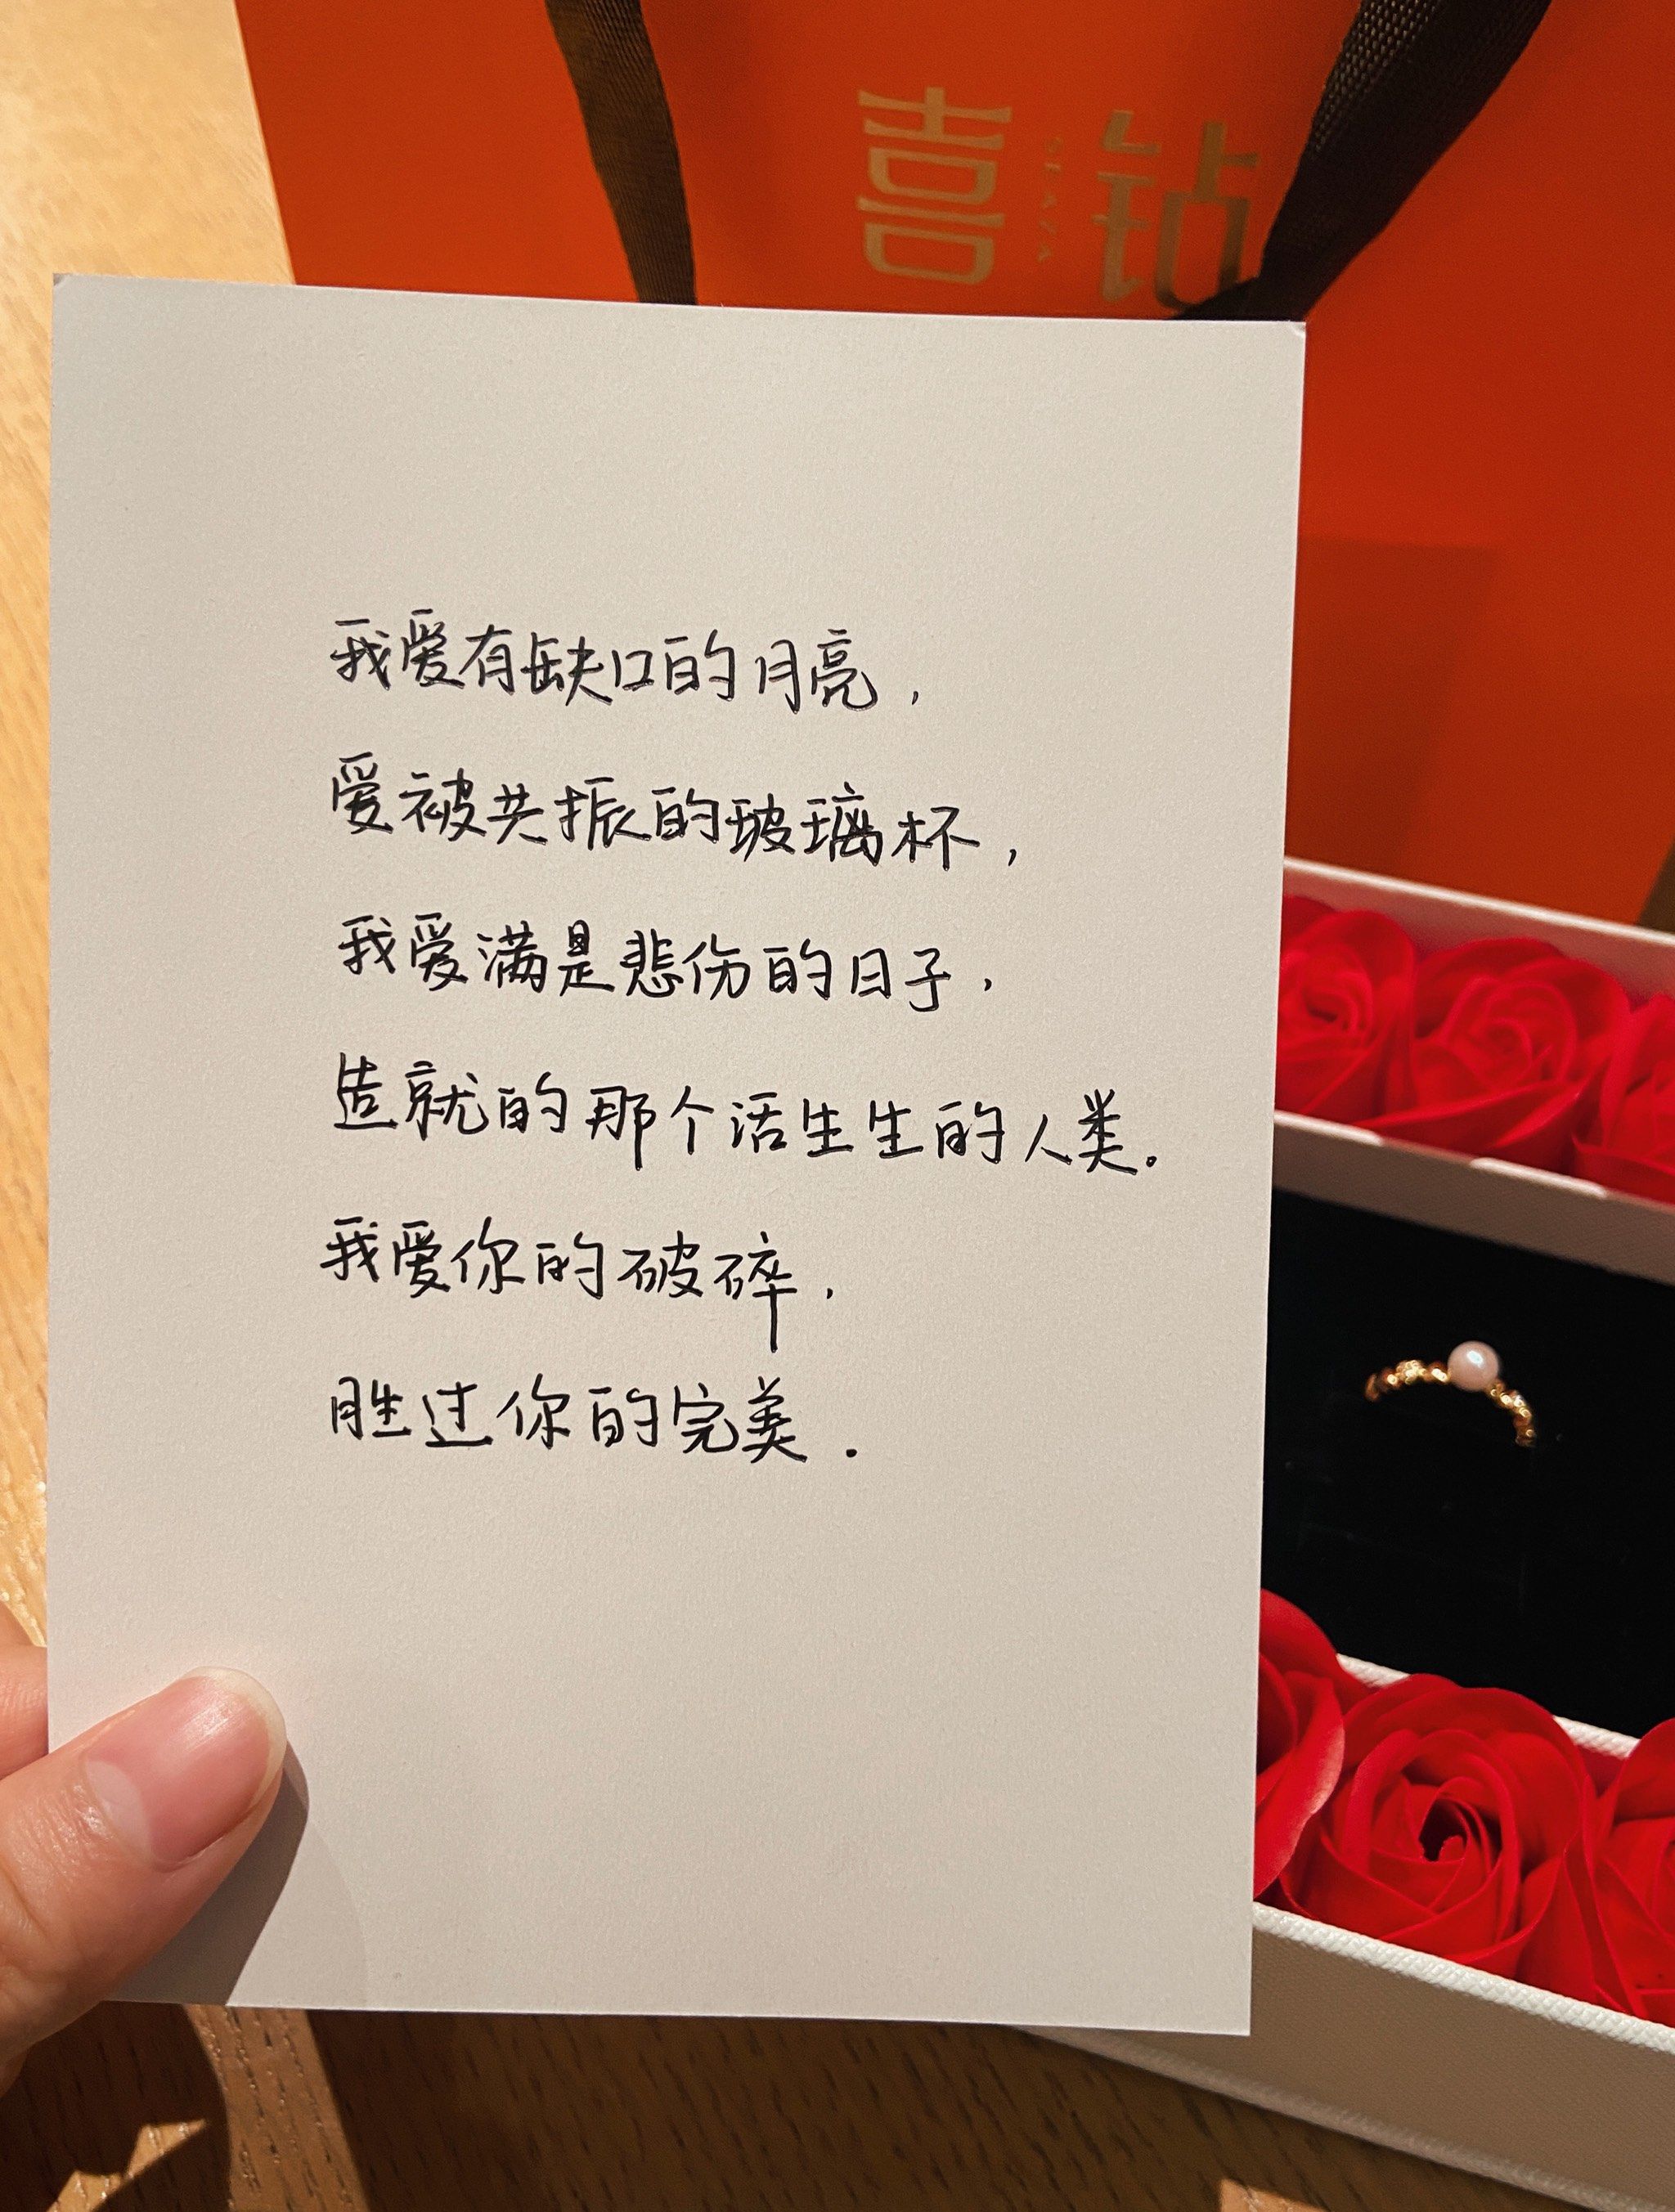 喜钻
我爱有缺口的月亮，
爱被共振的玻璃杯，
我爱满是悲伤的日子，
造就的那个活生生的人类。
我爱你的破碎，
胜过你的完美.